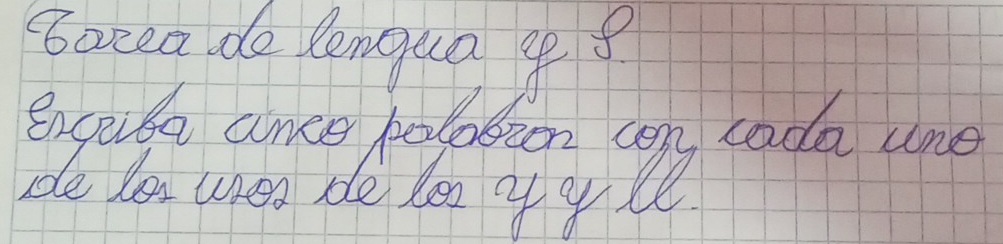 Tarea de lengua y 8.
Escriba cinco palabras con cada uno
de los usos de los y y ll.